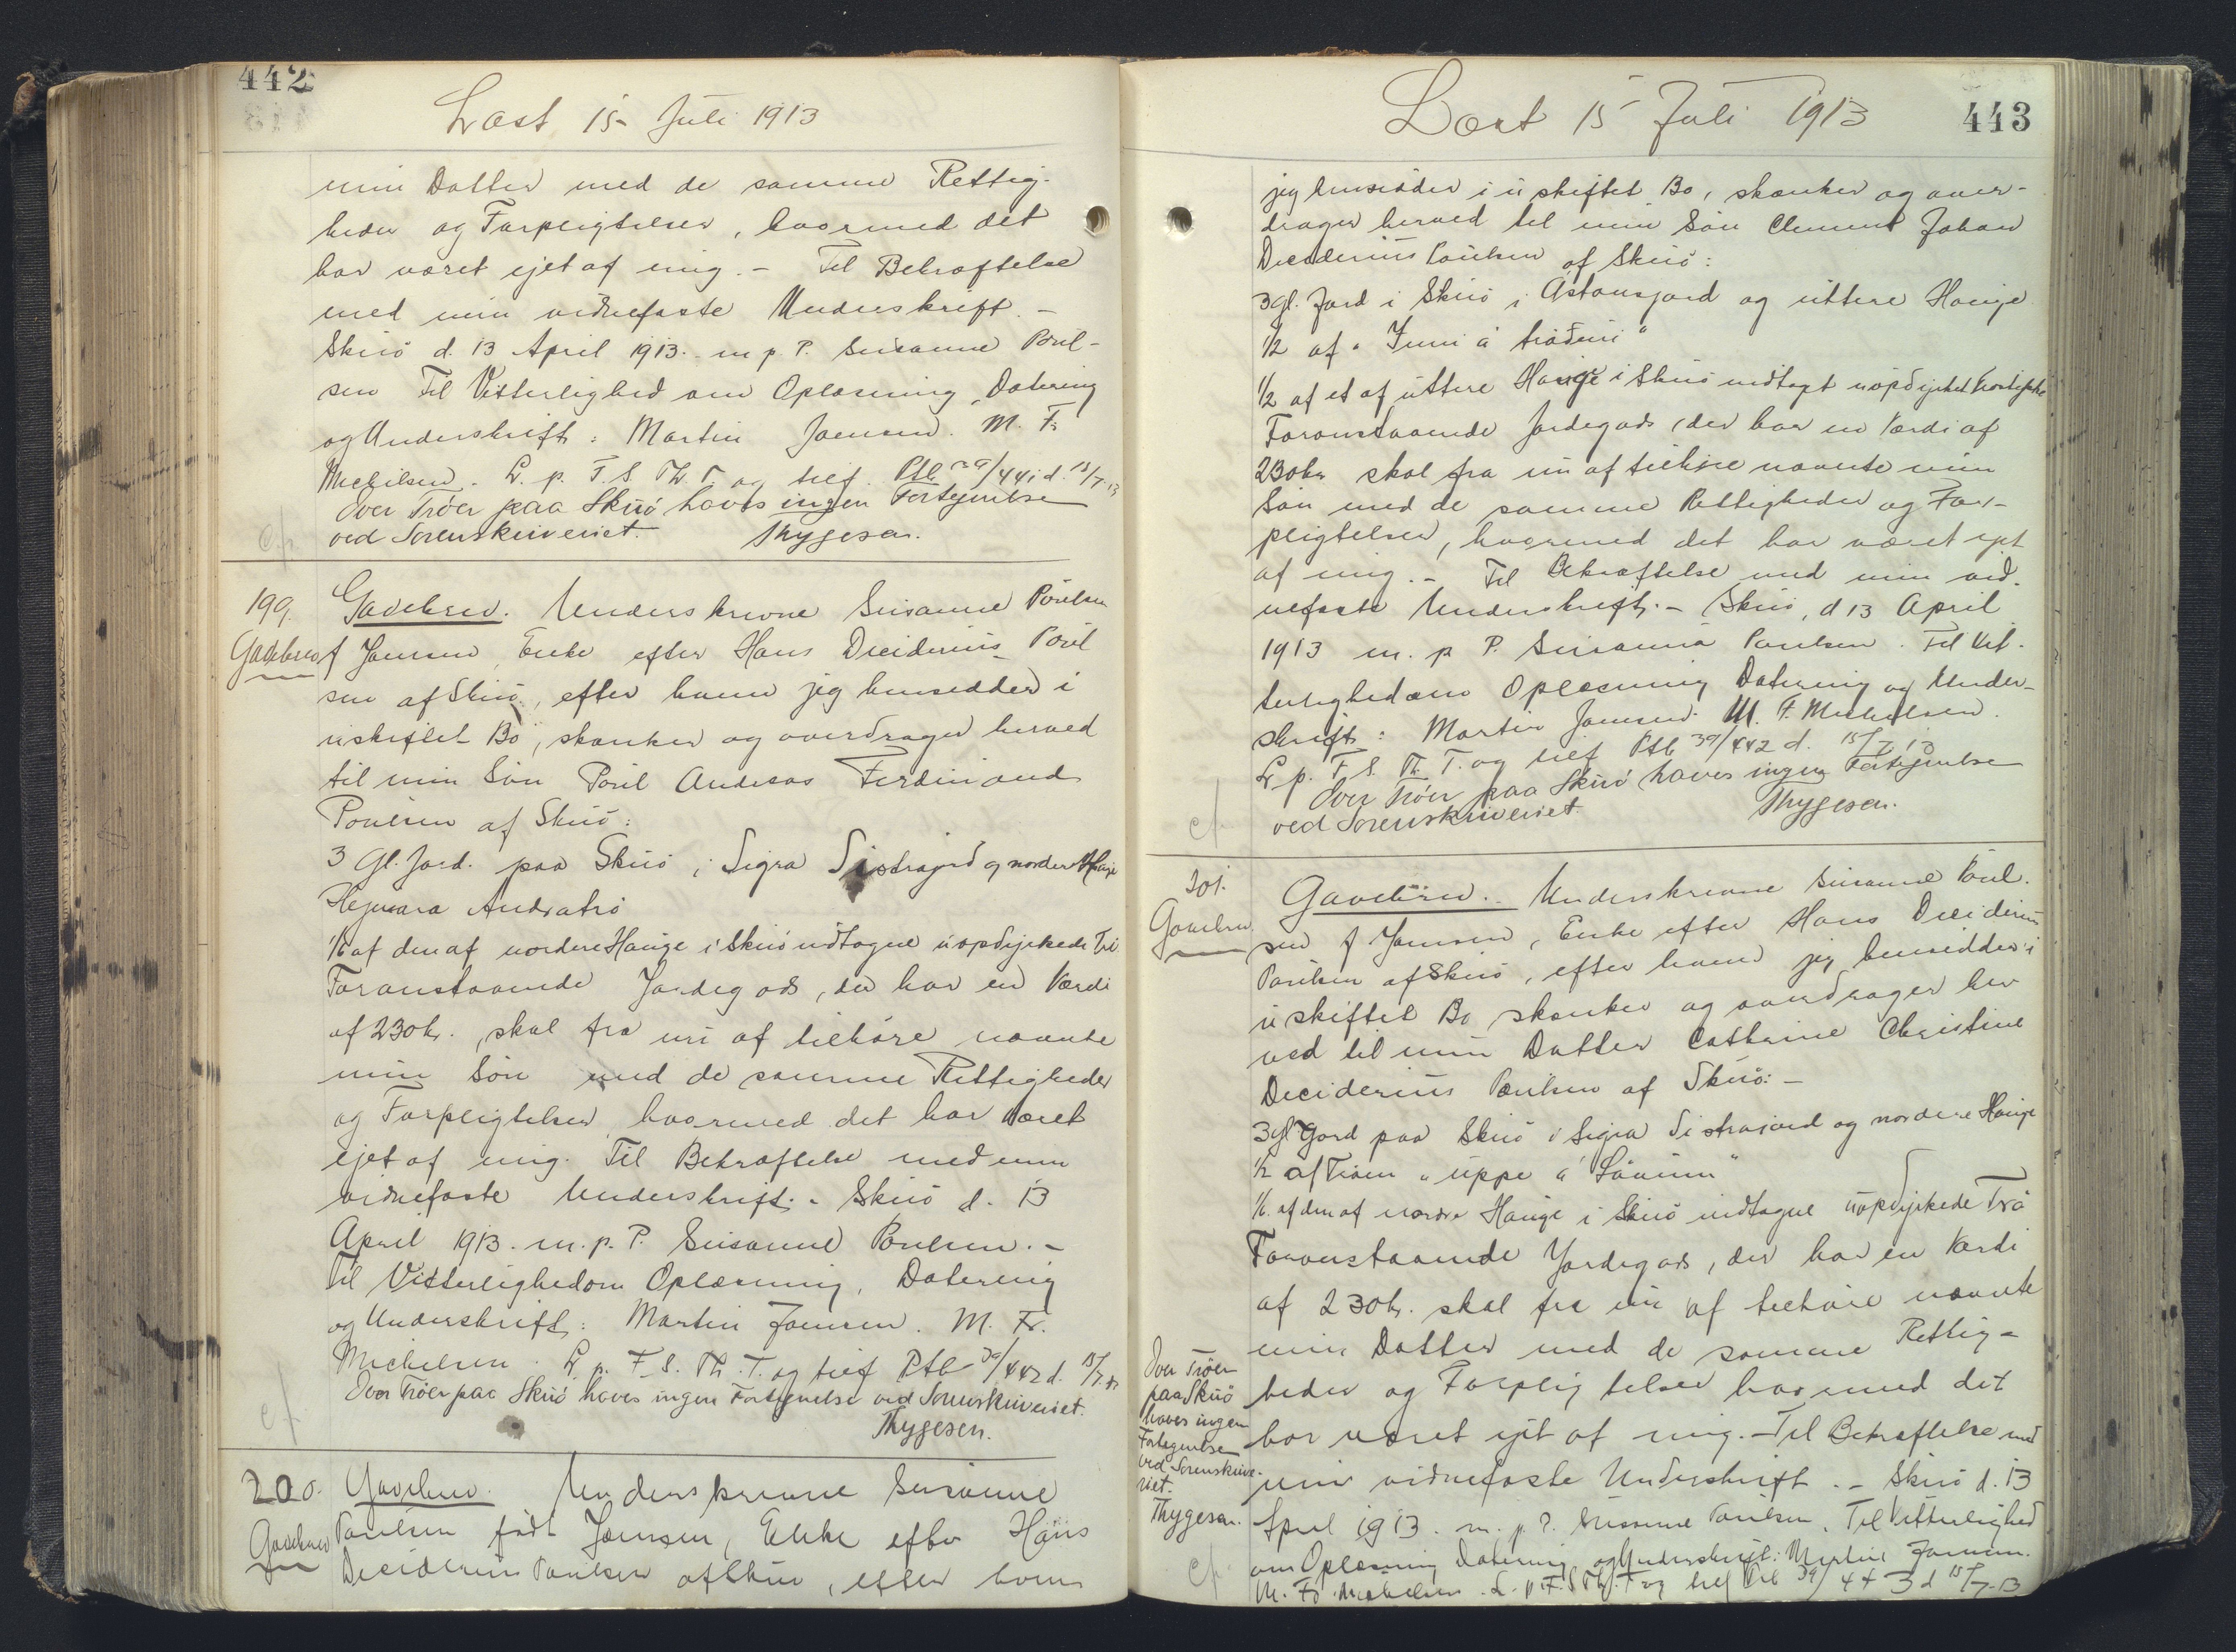 442
Læst 15 Juli 1913
min Datter med de samme Rettig-
heder og Forpligtelser, hvormed det
har været ejet af mig. - Til Bekræftelse
med min vidnefaste Underskrift. -
Skúø d. 13 April 1913. m. p. P. Susanne Poul-
sen Til Vitterlighed om Oplæsning, Datering
og Underskrift: Martin Joensen. M. Fr.
Michelsen. L. p. F. S. Th. T. og tilf. Ptb 39/441 d. 15/7 13
Over Trøer paa Skúø haves ingen Fortegnelse
ved Sorenskriveriet. Thygesen.
199.
Gavebrev
Gavebrev. Underskrevne Susanne Poulsen
f Joensen, Enke efter Hans Deciderius Poul
sen af Skúø, efter hvem jeg hensidder i
uskiftet Bo, skænker og overdrager herved
til min Søn Poul Andreas Ferdinand
Poulsen af Skúø:
3 Gl. Jord. paa Skúø i Sigra Sistrajord og nordere Hauge
Hegnara Andratrø
1/6 af den af nordere Hauge i Skúø indtagne uopdyrkede Trø
Foranstaaende Jordegods, der har en Værdi
af 230 kr., skal fra nu af tilhøre nævnte
min Søn med de samme Rettigheder
og Forpligtelser hvormed det har været
ejet af mig. Til Bekræftelse med min
vidnefaste Underskrift. - Skúø d. 13
April 1913. m. p. P. Susanne Poulsen. -
Til Vitterlighed om Oplæsning, Datering
og Underskrift: Martin Joensen. M. Fr.
Michelsen. L. p. F. S. Th. T. og tilf Ptb 39/442 d. 15/7 13
Over Trøer paa Skúø haves ingen Fortegnelse ved Sorenskriveriet.
Thygesen.
200.
Gavebrev
Gavebrev. Underskrevne Susanne
Poulsen født Joensen, Enke efter Hans
Deciderius Poulsen af Skúø, efter hvem
443
Læst 15 Juli 1913
jeg hensidder i uskiftet Bo, skænker og over-
drager herved til min Søn Clement Johan
Deciderius Poulsen af Skúø:
3 gl. Jord i Skúø i Astansjord og uttere Hauge
1/2 af "Inni á trøðuni"
1/2 af et af uttere Hauge i Skúø indtagt uopdyrket
Foranstaaende Jordegods, der har en Værdi af
230 kr skal fra nu af tilhøre nævnte min
Søn med de samme Rettigheder og For-
pligtelser, hvormed det har været ejet
af mig. - Til Bekræftelse med min vid-
nefaste Underskrift. - Skúø, d 13 April
1913 m. p P. Susanna Poulsen. Til Vit-
terlighed om Oplæsning Datering og Under-
skrift: Martin Joensen. M. F. Michelsen.
L. p. F. S. Th. T. og tilf Ptb 39/442 d. 15/7 13
Over Trøer paa Skúø haves ingen Fortegnelse
ved Sorenskriveriet. Thygesen.
201.
Gavebrev.
Gavebrev. Underskrevne Susanne Poul-
sen f Joensen, Enke efter Hans Deciderius
Poulsen af Skúø, efter hvem jeg hensidder i
uskiftet Bo skænker og overdrager her
ved til min Datter Cathrine Christine
Deciderius Poulsen af Skúø: -
3 gl Jord paa Skúø i Sigra Sistrajord og nordere Hauge
1/2 af Trøen "uppe á
1/6. af den af nordre Hauge i Skúø indtagne uopdyrkede Trø
Foranstaaende Jordegods, der har en Værdi
af 230 kr. skal fra nu af tilhøre nævnte
min Datter med de samme Rettig-
heder og Forpligtelser hvormed det
har været ejet af mig. - Til Bekræftelse med
min vidnefaste Underskrift. - Skúø d. 13
April 1913. m. p. P. Susanne Poulsen. Til Vitterlighed
om Oplæsning Datering og Underskrift: Martin Joensen.
M. Fr. Michelsen. L. p. F. S. Th. T og tilf Ptb 39/443 d 15/7-13
Over Trøer
paa Skúø
haves ingen
Fortegnelse
ved Sorenskrive-
riet.
Thygesen.